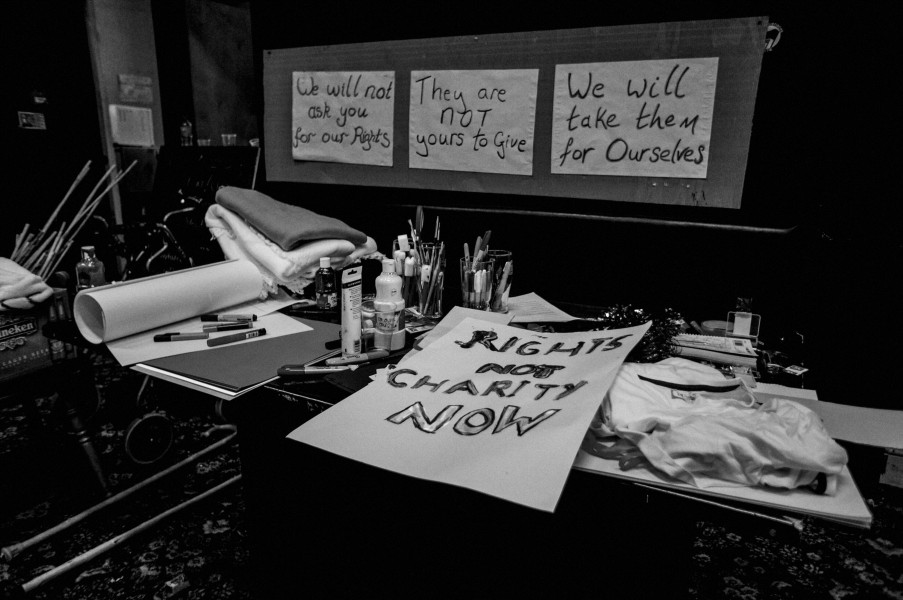 We will not
ask you
for our Rights
They are
NOT
yours to Give
We will
take them
for Ourselves
RIGHTS
NOT
CHARITY
NOW